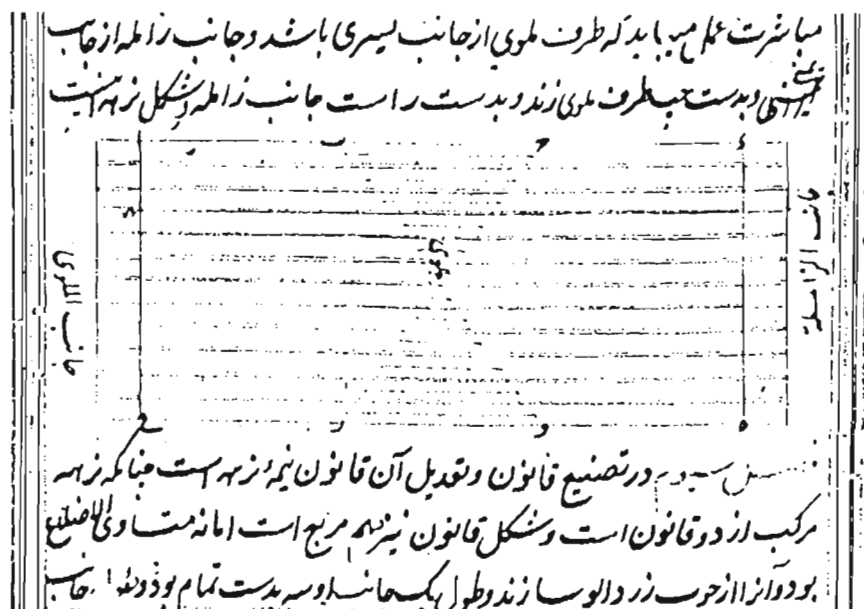 مباشرت عمل میباید که طرف ملوی از جانب یسری باشد و جانب زامله از جانب
یمنی و بدست چپ طرف ملوی زند و بدست راست جانب زامله و شکل نزهه اینست
جانب الزامله
جانب الملوی
در تصنیع قانون و تعدیل آن قانون نیمهٔ نزهه است چنانکه نزهه
مرکب از دو قانون است و شکل قانون نیز هم مربع است اما نه متساوی الاضلاع
بود و آنرا از چوب زردالو سازند و طول یک جانب او سه بدست تمام بود و جانب